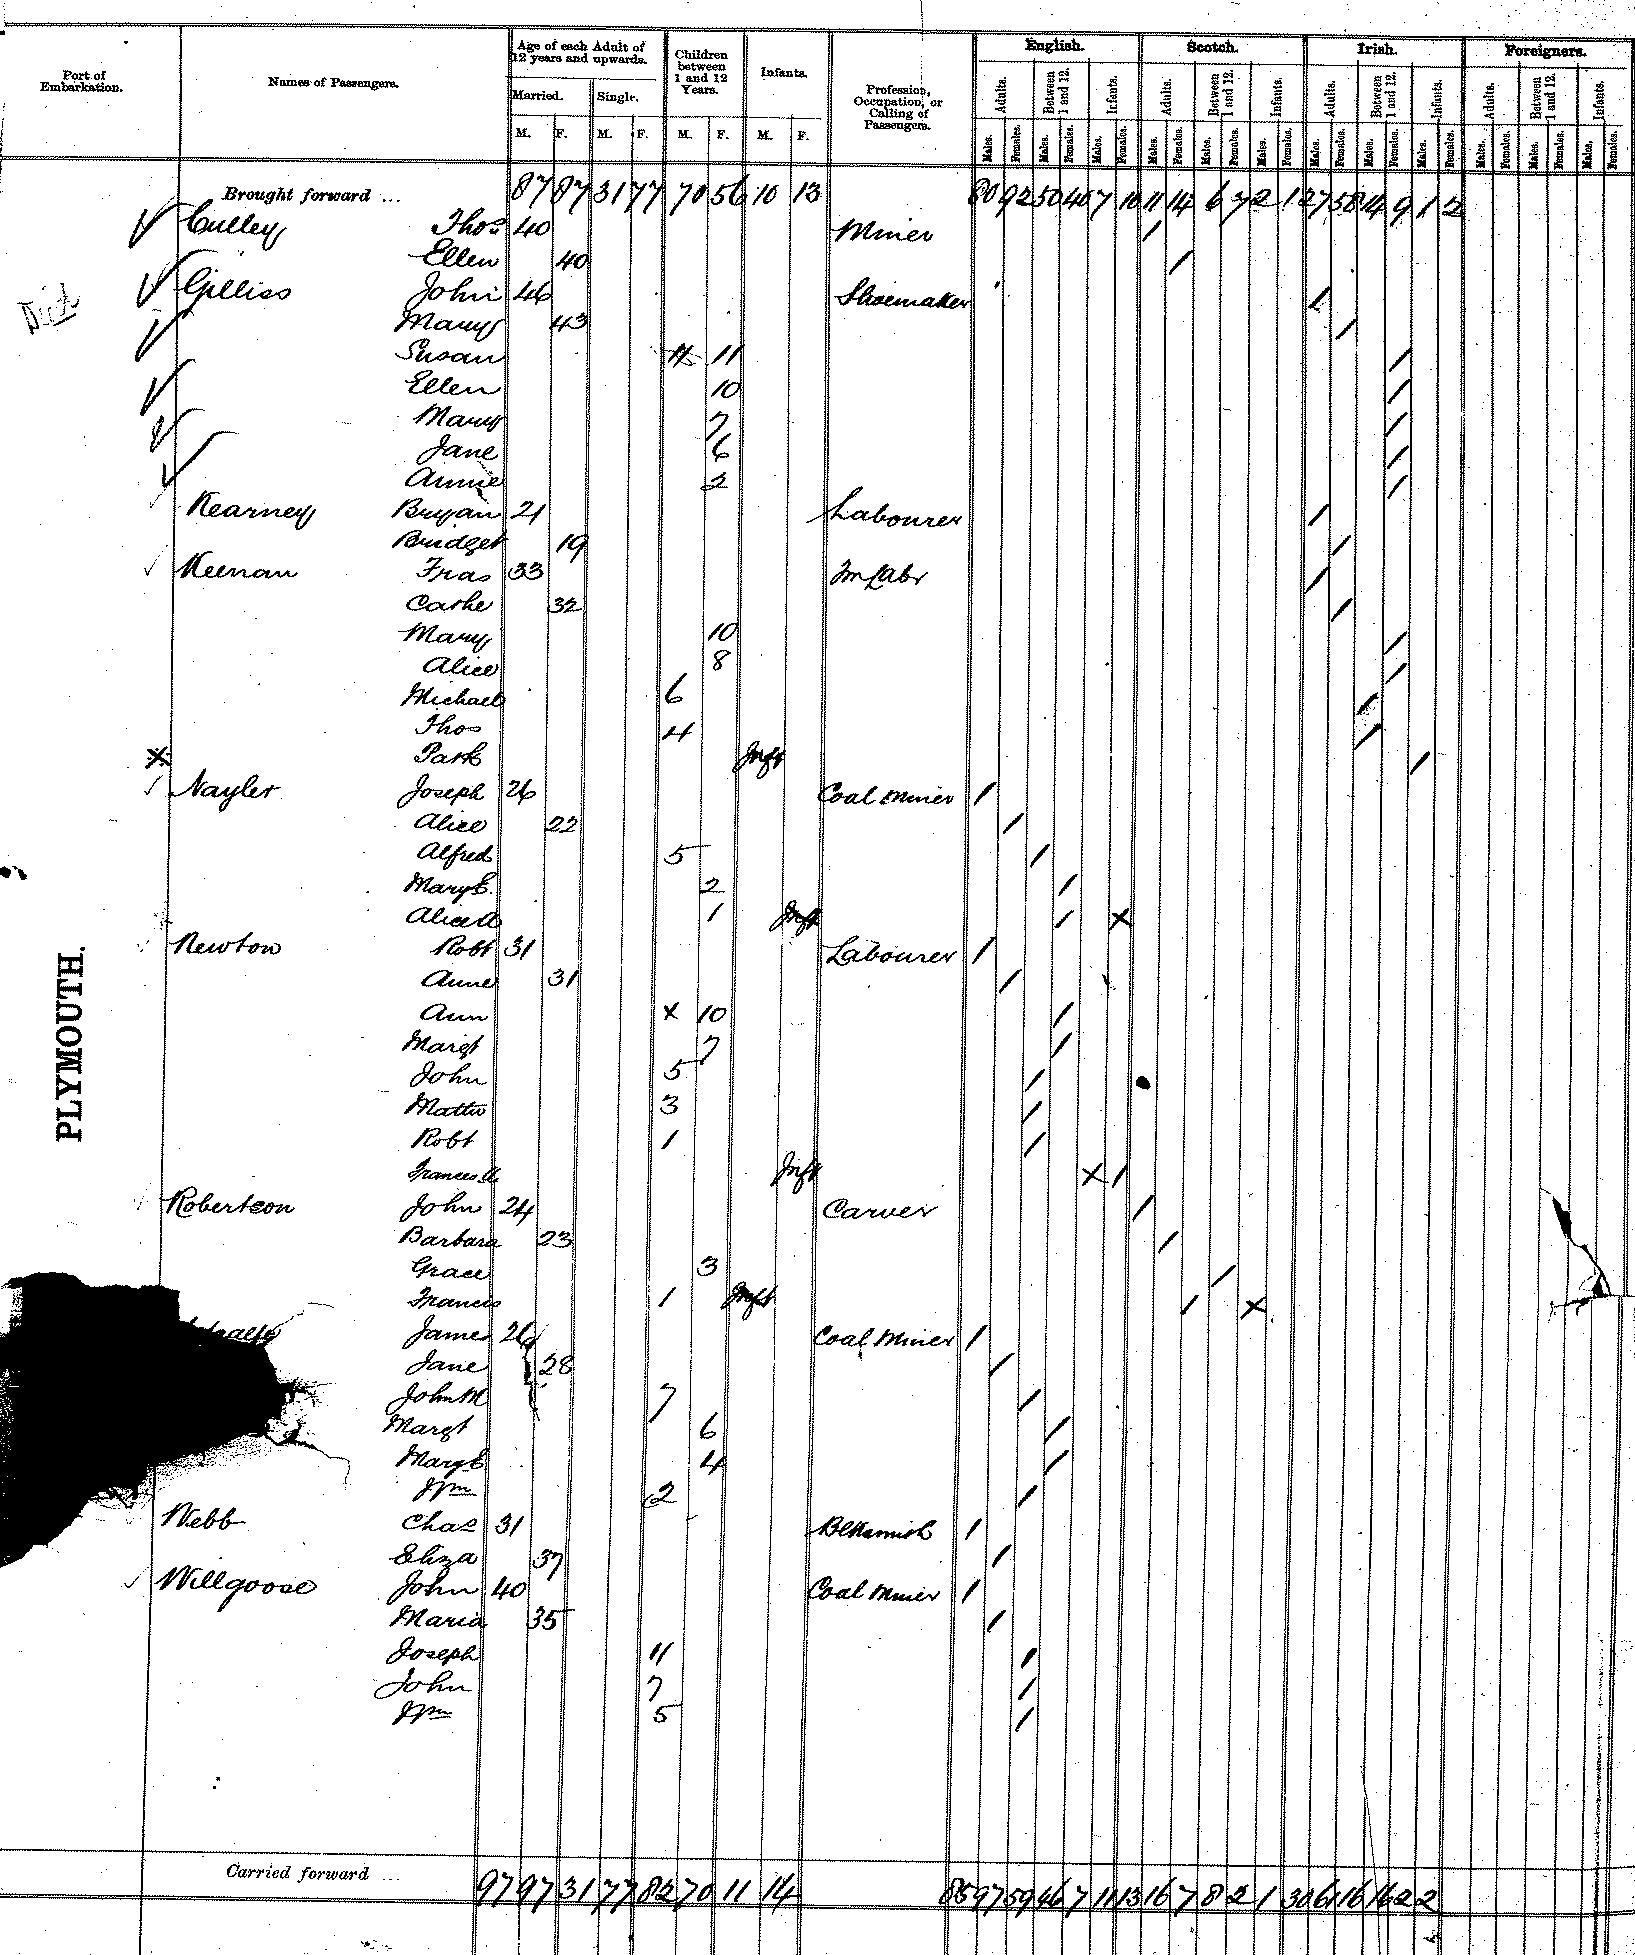 Port of Embarkation. Names of Passengers. Age of each Adult of 12 years and upwards. Married. M. F. Single. M. F. Children between 1 and 12 Years. M. F. Infants. M. F. Profession, Occupation, or Calling of Passengers. English. Adults. Males. Females. Between 1 and 12. Males. Females. Infants. Males. Females. Scotch. Adults. Males. Females. Between 1 and 12. Males. Females. Infants. Males. Females. Irish. Adults. Males. Females. Between 1 and 12. Males. Females. Infants. Males. Females. Foreigners. Adults. Males. Females. Between 1 and 12. Males. Females. Infants. Males. Females.
Brought forward ... 87 87 31 77 70 56 10 13 80 92 50 40 7 10 11 14 6 7 2 1 27 58 14 9 1 2
Culley Thos 40 Miner /
Ellen 40 /
Gilliss John 46 Shoemaker /
Mary 43 /
Susan 11 11 /
Ellen 10 /
Mary 7 /
Jane 6 /
Annie 2 /
Kearney Bryan 21 Labourer /
Bridget 19 /
Keenan Fras 33 Fm Labr /
Cathe 32 /
Mary 10 /
Alice 8 /
Michael 6 /
Thos 4 /
X Patk Inft /
Nayler Joseph 26 Coal Miner /
Alice 22 /
Alfred 5 /
Mary E. 2 /
Alice A 1 Inft / X
Newton Robt 31 Labourer /
Anne 31 /
Ann X 10 /
Margt 7 /
John 5 /
Matth 3 /
Robt 1 /
Frances A Inft X /
Robertson John 24 Carver /
Barbara 23 /
Grace 3 /
Francis 1 Inft / X
James 26 Coal Miner /
Jane 28 /
John M 7 /
Margt 6 /
Mary E 4 /
Wm 2 /
Webb Chas 31 Blksmith /
Eliza 37 /
Willgoose John 40 Coal Miner /
Maria 35 /
Joseph 11 /
John 7 /
Wm 5 /
PLYMOUTH.
Carried forward ... 97 97 31 77 82 70 11 14 85 97 59 46 7 11 13 16 7 8 2 1 30 61 16 16 2 2